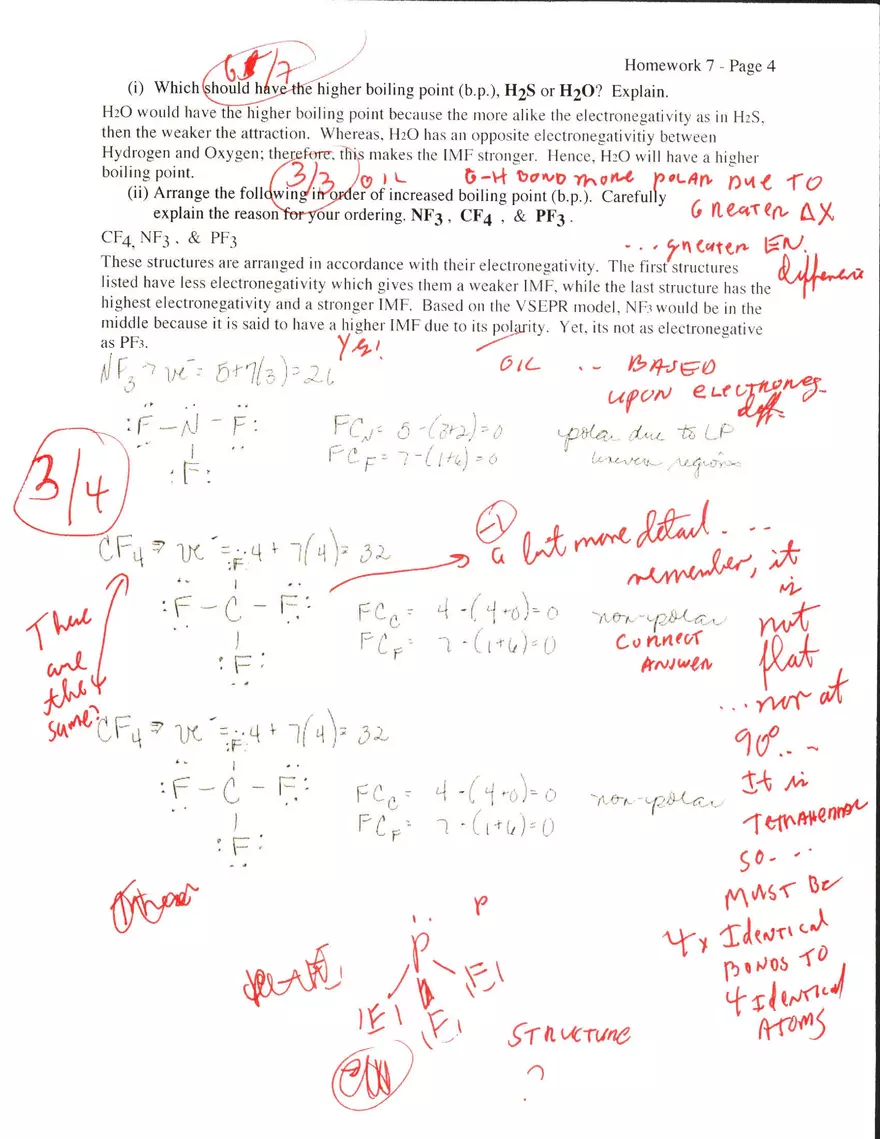 6 /7
Homework 7 - Page 4
(i) Which should have the higher boiling point (b.p.), H2S or H2O? Explain.
H2O would have the higher boiling point because the more alike the electronegativity as in H2S,
then the weaker the attraction. Whereas, H2O has an opposite electronegativitiy between
Hydrogen and Oxygen; therefore, this makes the IMF stronger. Hence, H2O will have a higher
boiling point.
3/3 OIL O-H BOND MORE POLAR DUE TO
GREATER ΔX
(ii) Arrange the following in order of increased boiling point (b.p.). Carefully
explain the reason for your ordering. NF3 , CF4 , & PF3 .
... greater EN.
difference
CF4, NF3 , & PF3
These structures are arranged in accordance with their electronegativity. The first structures
listed have less electronegativity which gives them a weaker IMF, while the last structure has the
highest electronegativity and a stronger IMF. Based on the VSEPR model, NF3 would be in the
middle because it is said to have a higher IMF due to its polarity. Yet, its not as electronegative
as PF3.
Yes!
OIL .. BASED
UPON ELECTRONEG.
diff
NF3 → ve- = 5+7(3)=26
:F-N-F:
:F:
FCN= 5-(3+2)=0
FCF= 7-(1+6)=0
polar due to LP
uneven regions
3/4
CF4 ⇒ ve- = 4 + 7(4)= 32
:F:
:F-C-F:
:F:
FCC= 4-(4+0)=0 non-polar
FCF= 7-(1+6)=0
-1
a bit more detail...
remember, it
is
not
flat
...nor at
90°...
It is
TETRAHEDRAL
SO-...
MUST BE
4x IDENTICAL
BONDS TO
4 IDENTICAL
ATOMS
CORRECT
ANSWER
There
are
the
same?
CF4 ⇒ ve- = 4 + 7(4)= 32
:F:
:F-C-F:
:F:
FCC= 4-(4+0)=0 non-polar
FCF= 7-(1+6)=0
P
P
|F| |F| |F|
STRUCTURE
?